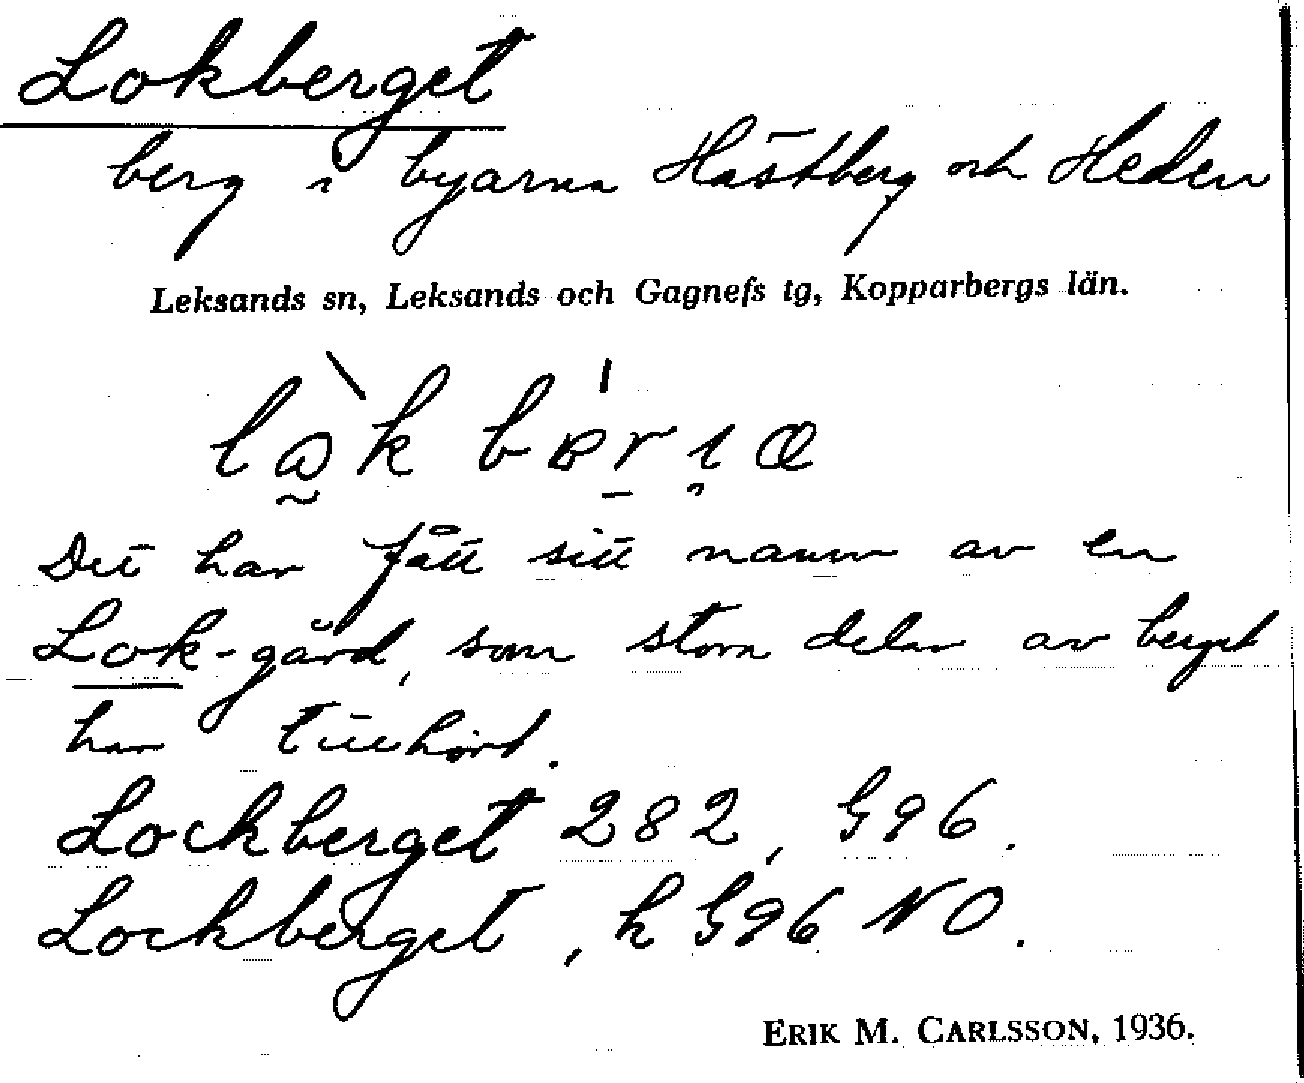 Lokberget
berg i byarna Hästberg och Heden
Leksands sn, Leksands och Gagnefs tg, Kopparbergs län.
Det har fått sitt namn av en
Lok-gård, som stora delar av berget
har tillhört.
Lockberget 282, G96.
Lockberget, h G96 NO.
ERIK M. CARLSSON, 1936.